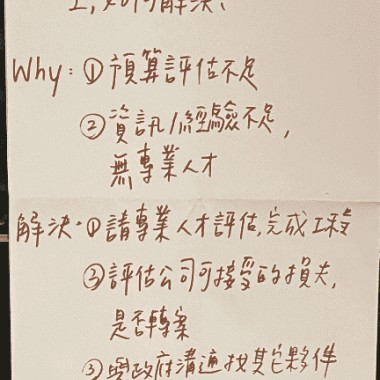 1,如何解決?
Why:①預算評估不足
②資訊/經驗不足,
無專業人才
解決:①請專業人才評估,完成工程
③評估公司可接受的損失,
是否轉案
③與政府溝通找其它夥伴